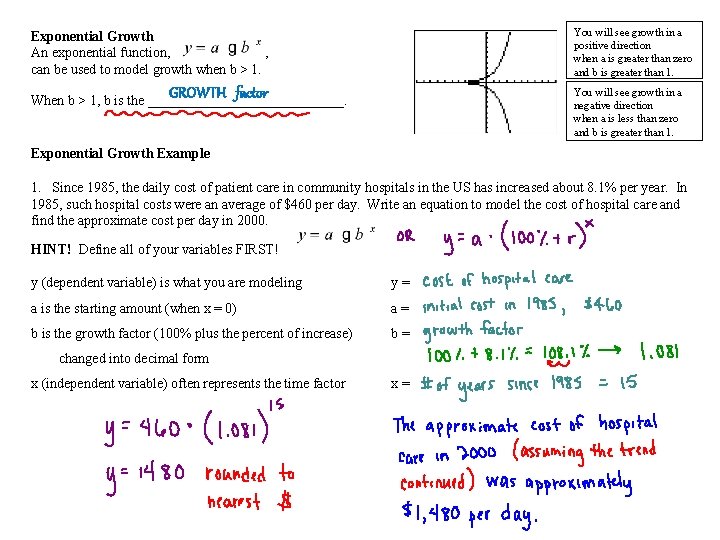 Exponential Growth
An exponential function, y = a g b^x ,
can be used to model growth when b > 1.
When b > 1, b is the GROWTH factor.
You will see growth in a
positive direction
when a is greater than zero
and b is greater than 1.
You will see growth in a
negative direction
when a is less than zero
and b is greater than 1.
Exponential Growth Example
1. Since 1985, the daily cost of patient care in community hospitals in the US has increased about 8.1% per year. In
1985, such hospital costs were an average of $460 per day. Write an equation to model the cost of hospital care and
find the approximate cost per day in 2000.
y = a g b^x OR y = a · (100% + r)^x
HINT! Define all of your variables FIRST!
y (dependent variable) is what you are modeling y = cost of hospital care
a is the starting amount (when x = 0) a = initial cost in 1985, $460
b is the growth factor (100% plus the percent of increase) b = growth factor
changed into decimal form 100% + 8.1% = 108.1% → 1.081
x (independent variable) often represents the time factor x = # of years since 1985 = 15
y = 460 · (1.081)^15
y = 1480 rounded to
nearest $
The approximate cost of hospital
care in 2000 (assuming the trend
continued) was approximately
$1,480 per day.